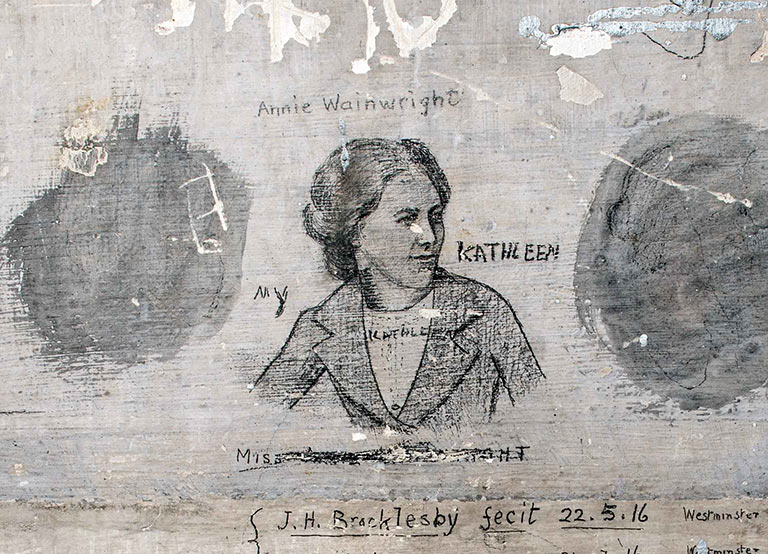 Annie Wainwright
KATHLEEN
MY
KATHLEEN
MISS
{ J.H. Brocklesby fecit 22.5.16 Westminster